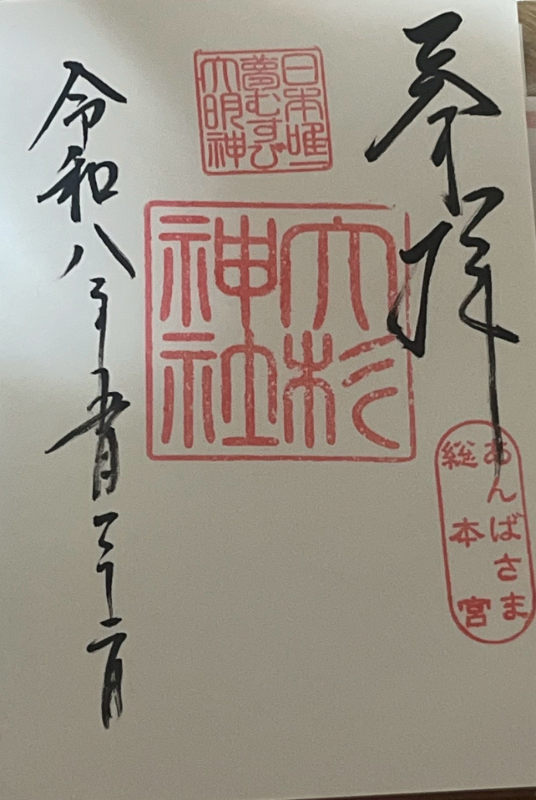 奉拝
あんばさま
総本宮
日本唯一
夢むすび
大明神
大杉
神社
令和八年五月二十二日